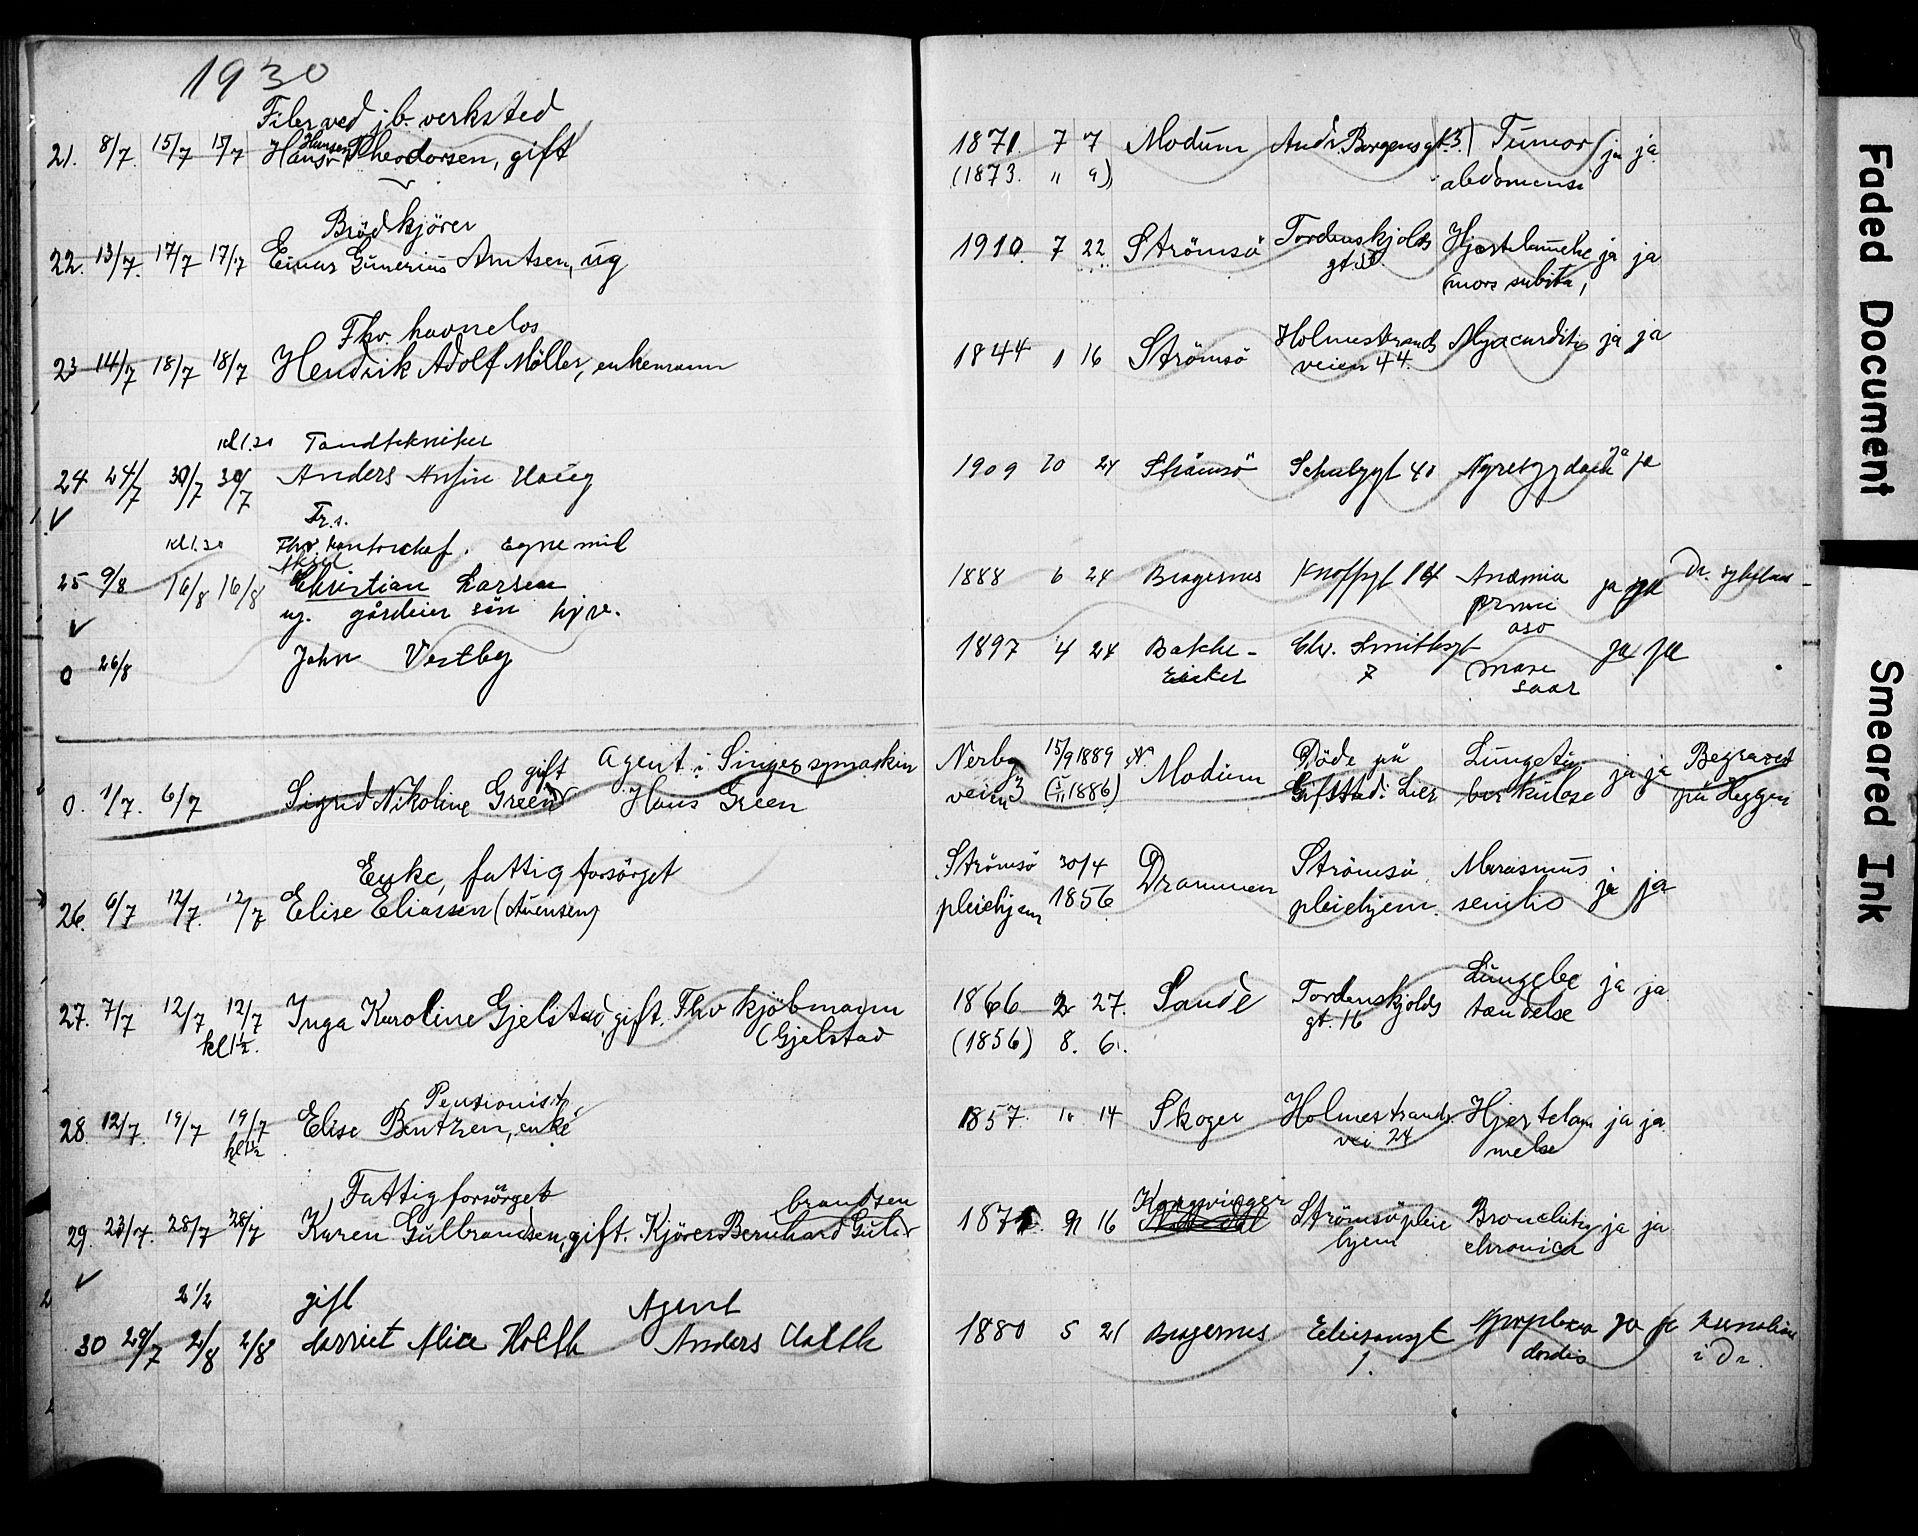 1930
Filer ved j.b. verksted
21. 8/7 15/7 15/7 Hans Hansen Theodorsen, gift 1871. 7 7 Modum Andr. Borgensgt. 3. Tumor ja ja
(1873. " 9) abdomens
Brödkjörer
22. 13/7. 17/7 17/7 Einar Gunerius Arntsen, ug 1910. 7 22 Strömsö Tordenskjolds Hjertelamelse ja ja
gt. mors subita,
Fhv. havnelos
23 14/7 18/7 18/7 Hendrik Adolf Möller, enkemann 1844 1 16 Strömsö Holmestrands Myocarditis ja ja
veien 44.
kl 1.30 Tandtekniker
24 24/7 30/7 30/7 Anders Haug 1909 10 24 Strömsö 40 ja ja
Fr. s.
kl 1.30 Fhv. kontorchef. Egne mil
25 9/8 16/8 16/8 Christian Larsen 1888 6 24 Bragernes Knoffsgt 14 Anæmia ja ja Dr.
ug. gårdeier sön
0 26/8 John Vestby 1897 4 24 Bakke - Chr. Smithsgt ja ja
Eiker 7
gift Agent i Singer symaskin Nerby 15/9 1889 Modum Döde på Lungetu- ja ja Begravet
0. 1/7. 6/7 Sigrid Nikoline Green Hans Green veien 3 1886) Gifstad i Lier berkulose på Heggen
Enke, fattigforsörget Strömsö 30/4 Drammen Strömsö Marasmus ja ja
26. 6/7 12/7. 12/7 Elise Eliassen (Auensen) pleiehjem 1856 pleiehjem. senilis
27. 7/7 12/7 12/7 Inga Karoline Gjelstad, gift. Fhv kjöbmann 1866 2 27. Sande Tordenskjolds Lungebe ja ja
kl 1½. (Gjelstad (1856) 8. 6. gt. 16 tændelse
Pensionist
28. 12/7. 19/7 19/7 Elise Bentzen, enke 1857. 10 14 Skoger Holmestrands Hjertelam ja ja
kl 1½ vei 24 melse
Fattigforsörget brandsen Kongsvinger
29. 23/7. 28/7 28/7 Karen Gulbrandsen, gift. Kjörer Bernhard Gul- 1871. 9 16 Strömsöpleie Bronchitis ja ja
hjem chronica
2 1/2 gift Agent
30 29/7 2/8 2/8 Harriet Alice Holth Anders Holth 1880 5 21 Bragernes 1. Apoplexia cordis ja ja i Dr.
Faded Document
Smeared Ink